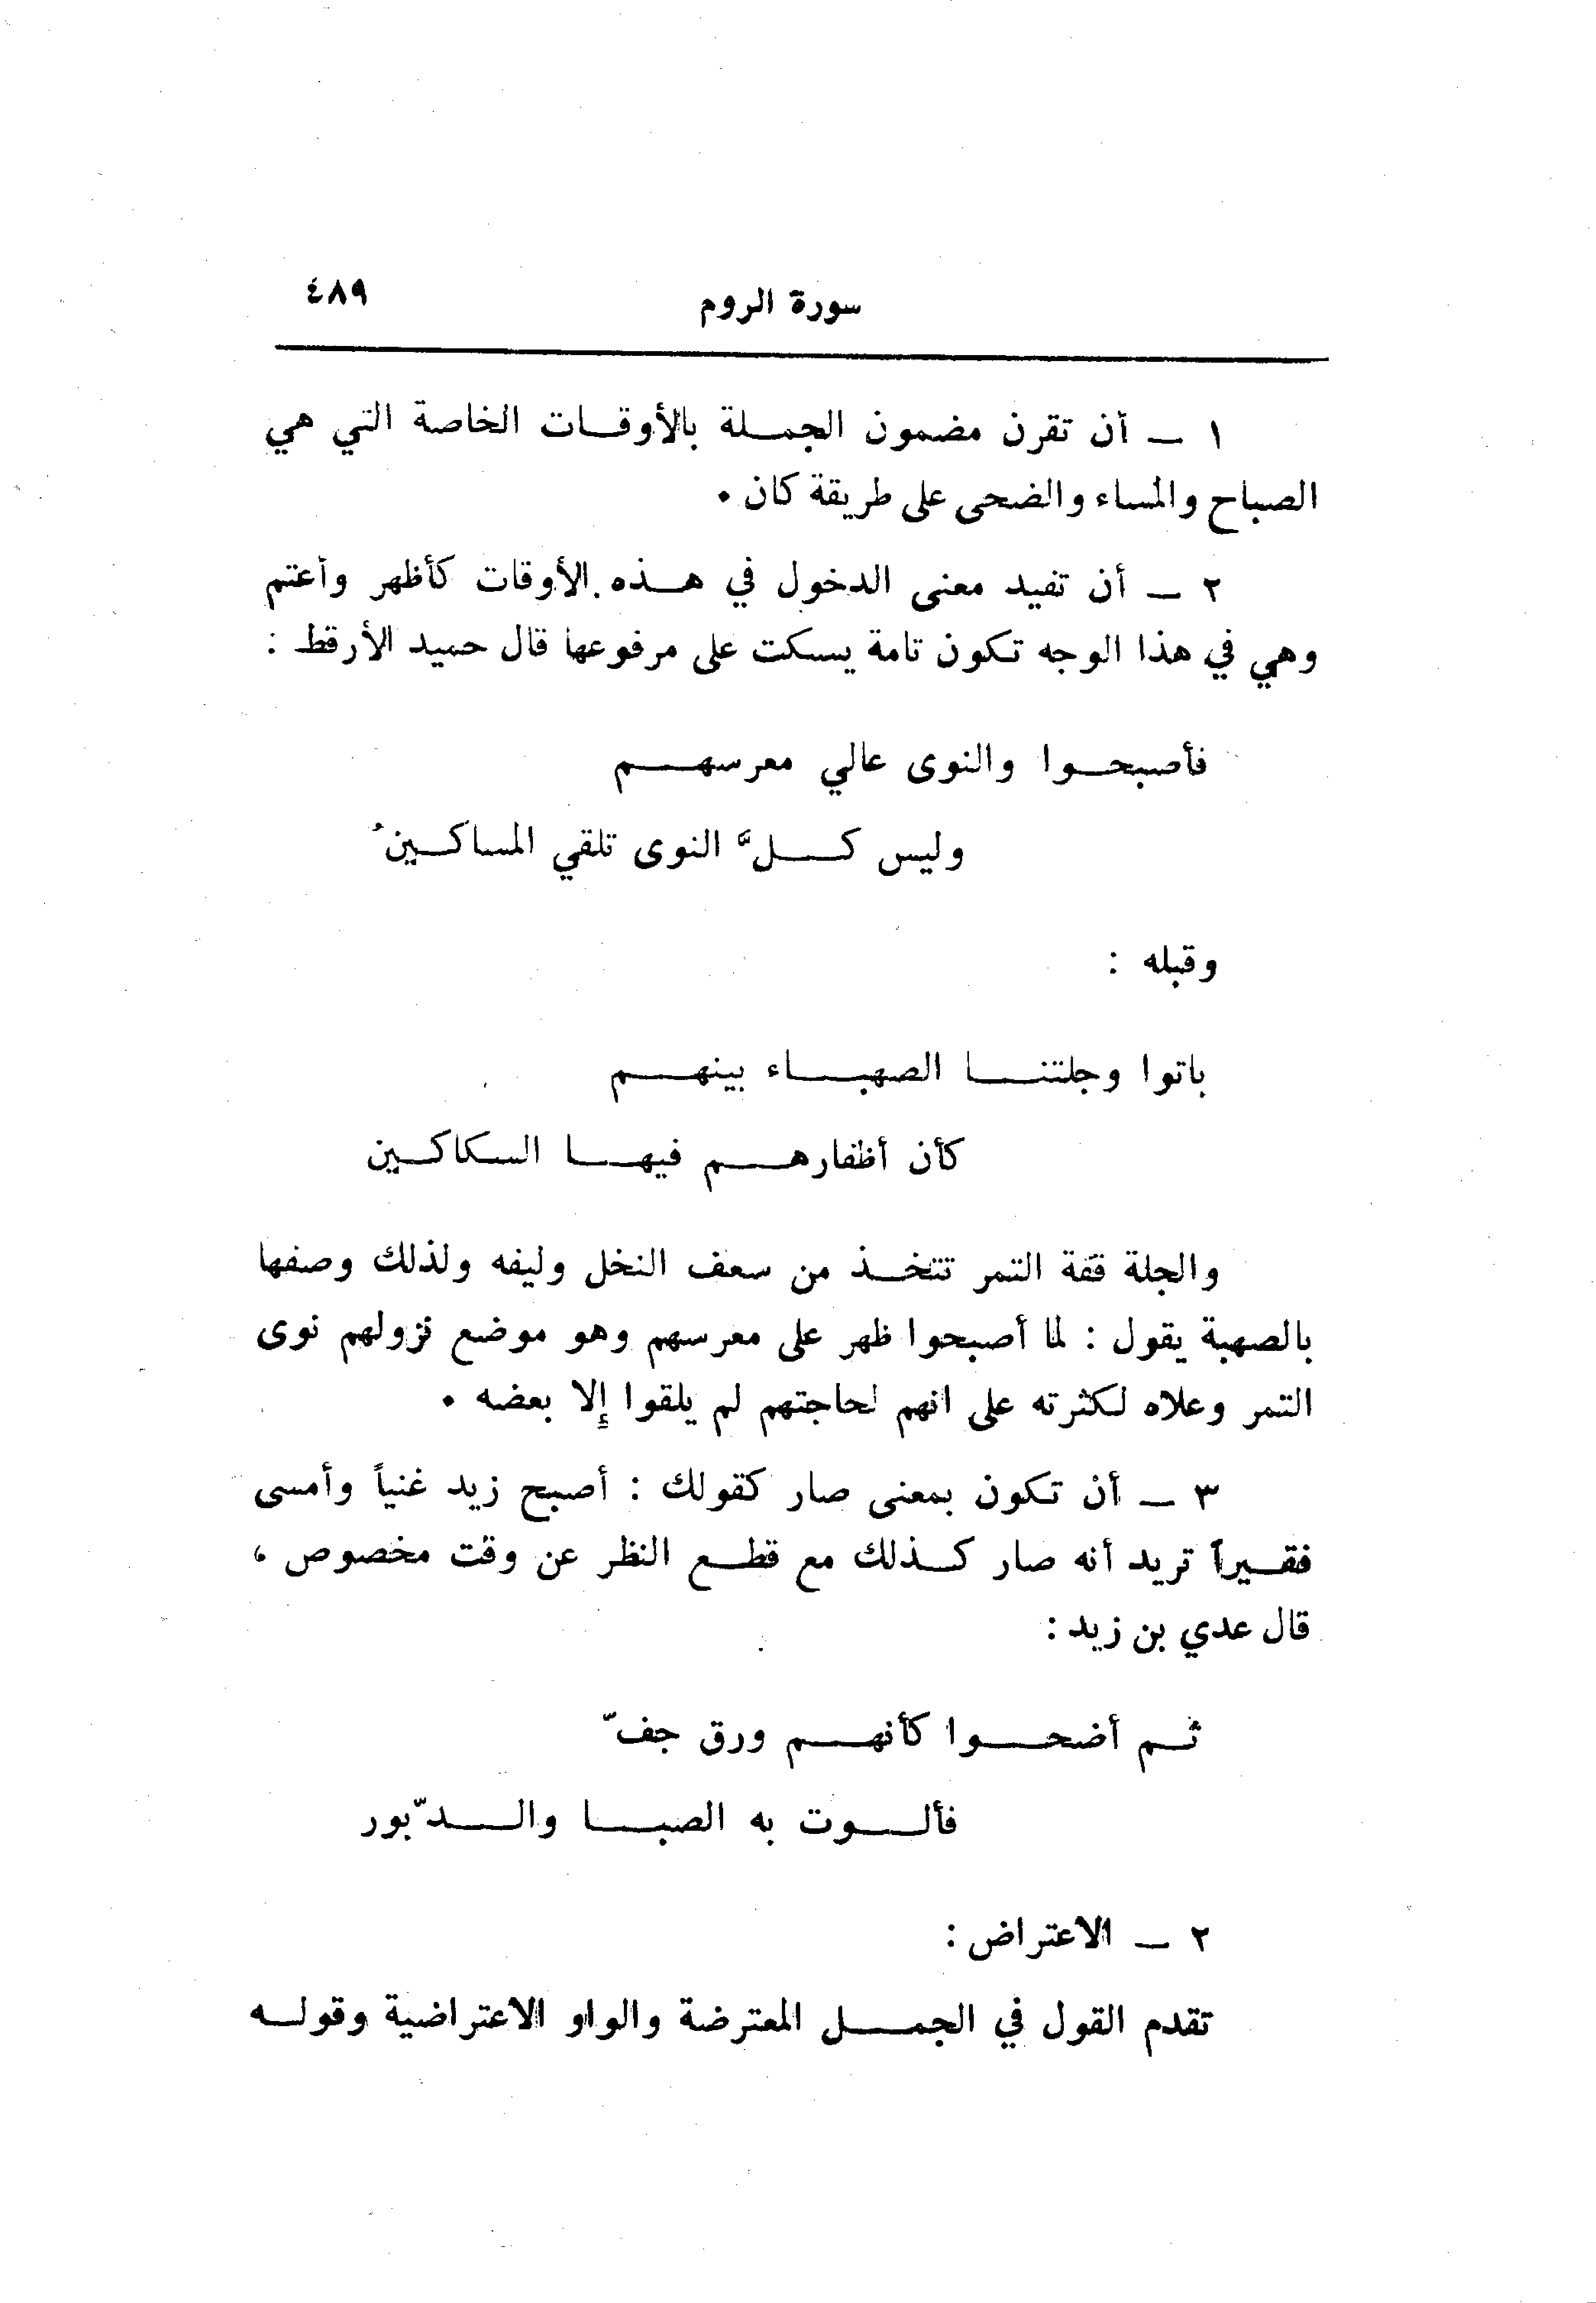 سورة الروم ٤٨٩
١ — أن تقرن مضمون الجملة بالأوقات الخاصة التي هي
الصباح والمساء والضحى على طريقة كان .
٢ — أن تفيد معنى الدخول في هذه الأوقات كأظهر وأعتم
وهي في هذا الوجه تكون تامة يسكت على مرفوعها قال حميد الأرقط :
فأصبحوا والنوى عالي معرسهم
وليس كلَّ النوى تلقي المساكينُ
وقبله :
باتوا وجلتنا الصهباء بينهم
كأن أظفارهم فيها السكاكين
والجلة قفة التمر تتخذ من سعف النخل وليفه ولذلك وصفها
بالصهبة يقول : لما أصبحوا ظهر على معرسهم وهو موضع نزولهم نوى
التمر وعلاه لكثرته على انهم لحاجتهم لم يلقوا إلا بعضه .
٣ — أن تكون بمعنى صار كقولك : أصبح زيد غنياً وأمسى
فقيراً تريد أنه صار كذلك مع قطع النظر عن وقت مخصوص ،
قال عدي بن زيد :
ثم أضحوا كأنهم ورق جفّ
فألوت به الصبا والدّبور
٢ — الاعتراض :
تقدم القول في الجمل المعترضة والواو الاعتراضية وقوله